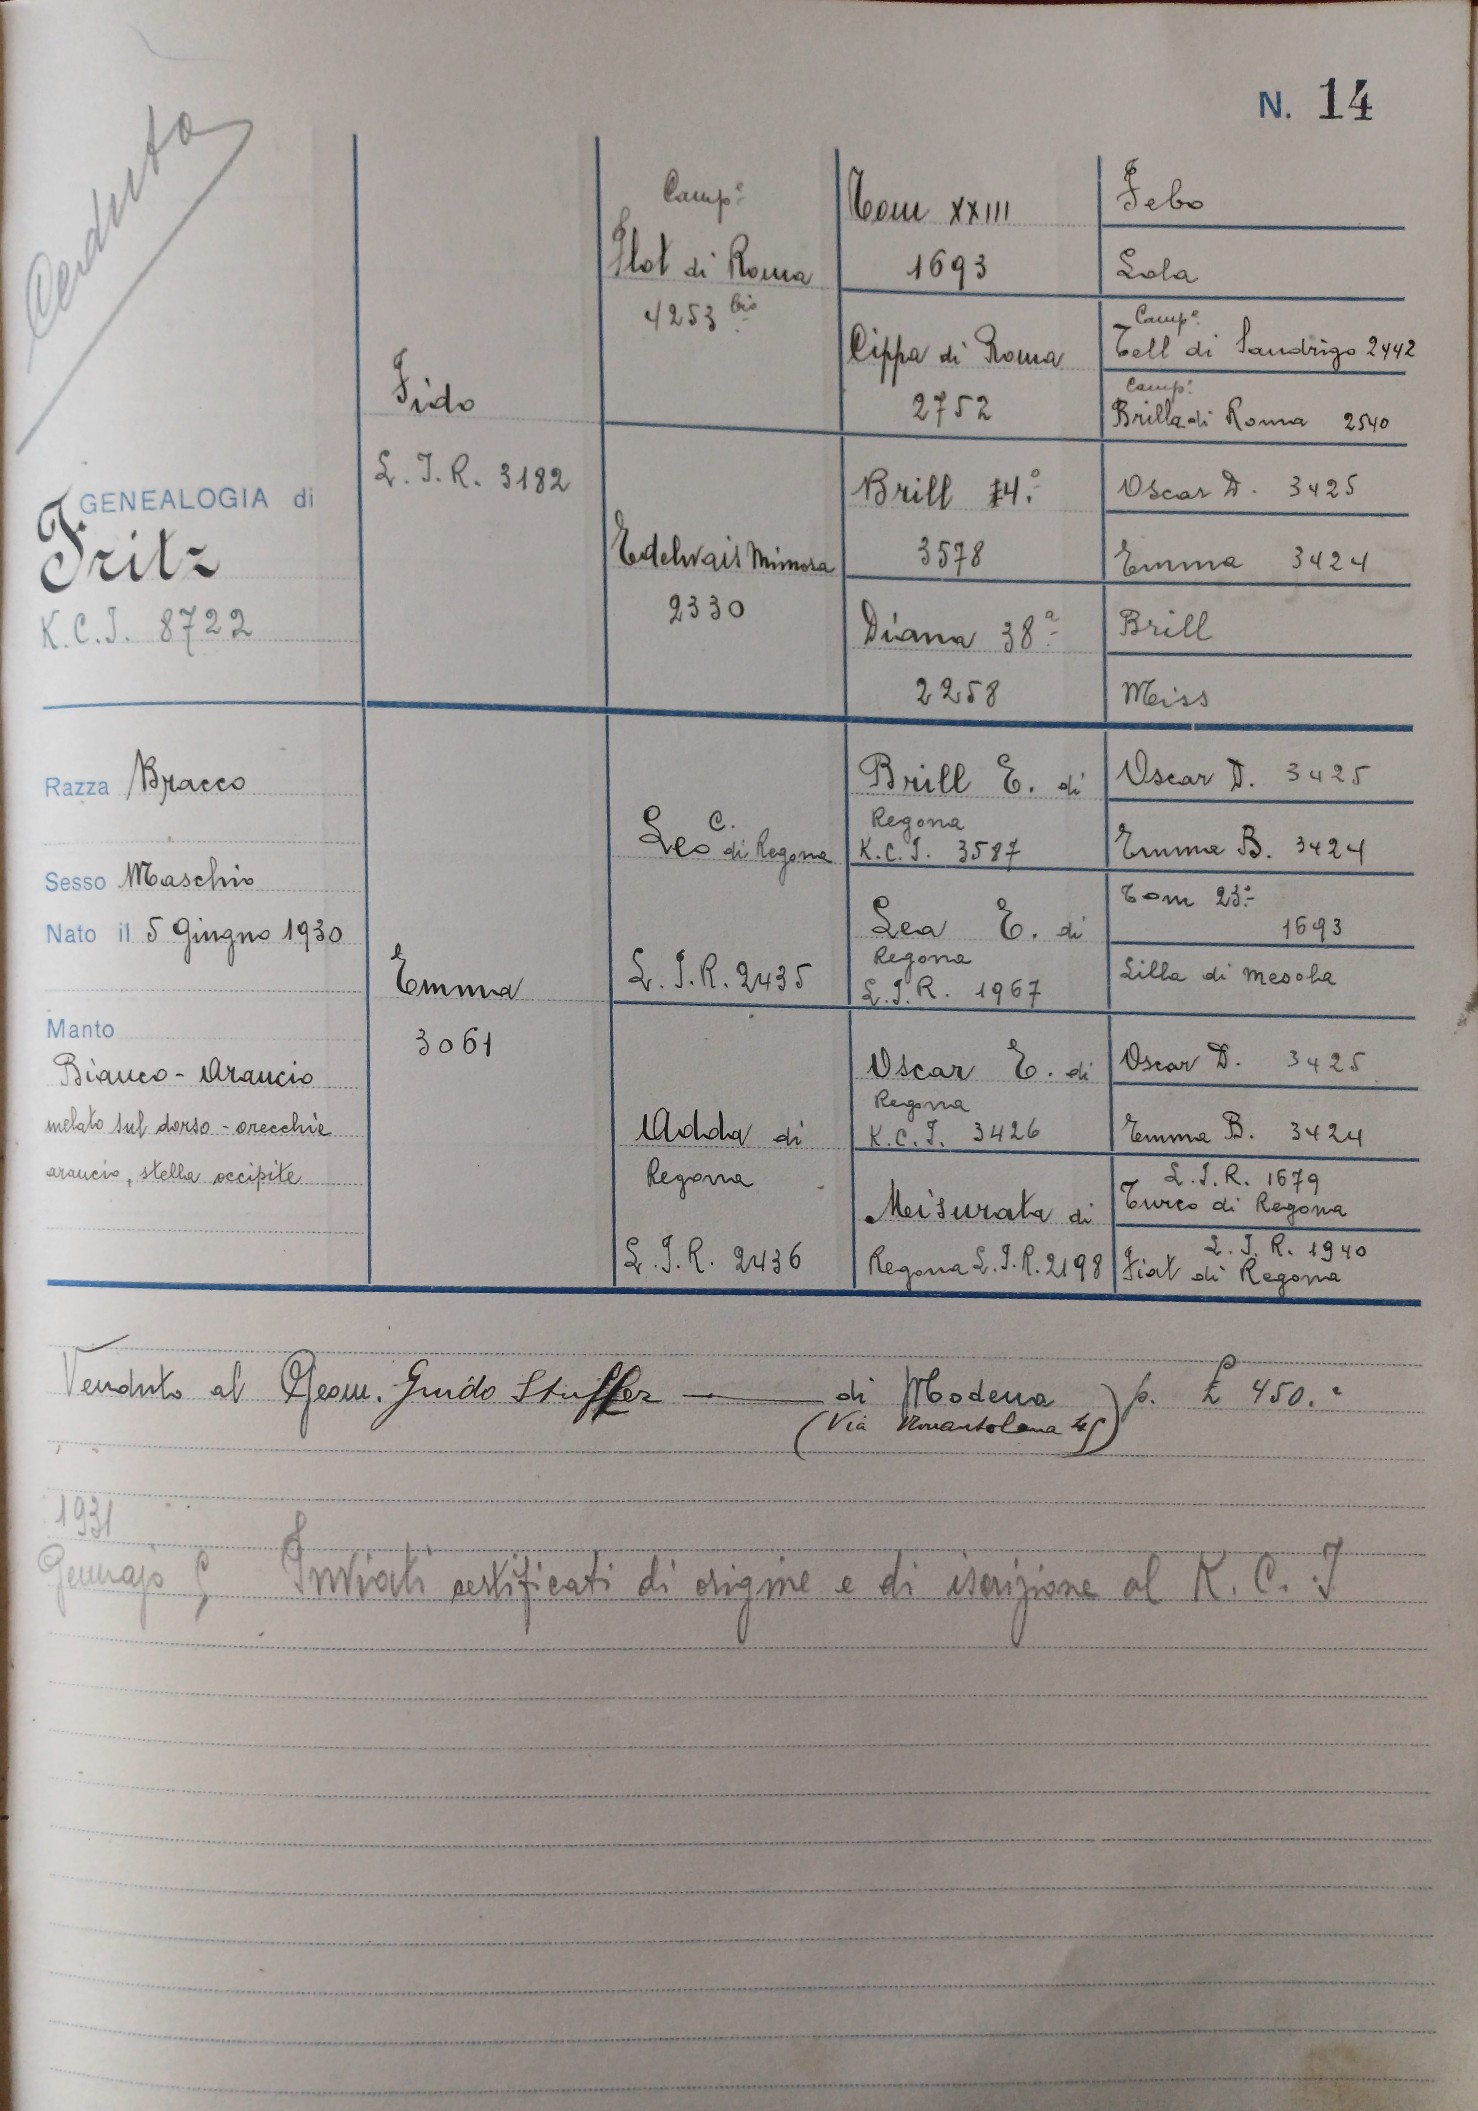 N. 14
Ceduto
GENEALOGIA di
Fritz
K.C.I. 8722
Razza Bracco
Sesso Maschio
Nato il 5 Giugno 1930
Manto
Bianco - Arancio
melato sul dorso - orecchie
arancio, stella occipite
Fido
L.I.R. 3182
Emma
3061
Camp.e
Flot di Roma
4253 bis
Edelvais Mimosa
2330
Leo C. di Regona
L.I.R. 2435
Adda di
Regona
L.I.R. 2436
Tom XXIII
1693
Cippa di Roma
2752
Brill 14.°
3578
Diana 38a
2258
Brill E. di
Regona
K.C.I. 3587
Lea E. di
Regona
L.I.R. 1967
Oscar E. di
Regona
K.C.I. 3426
Misurata di
Regona L.I.R. 2198
Febo
Lola
Camp.e
Tell di Sandrigo 2442
Camp.e
Brilla di Roma 2540
Oscar D. 3425
Emma 3424
Brill
Miss
Oscar D. 3425
Emma B. 3424
Tom 23.°
1693
Lilla di Mesola
Oscar D. 3425
Emma B. 3424
L.I.R. 1679
Turco di Regona
L.I.R. 1940
Fiat di Regona
Venduto al Geom. Guido Stuffler di Modena p. £ 450.=
(Via Nonantolana)
1931
Gennajo Inviati certificati di origine e di iscrizione al K.C.I